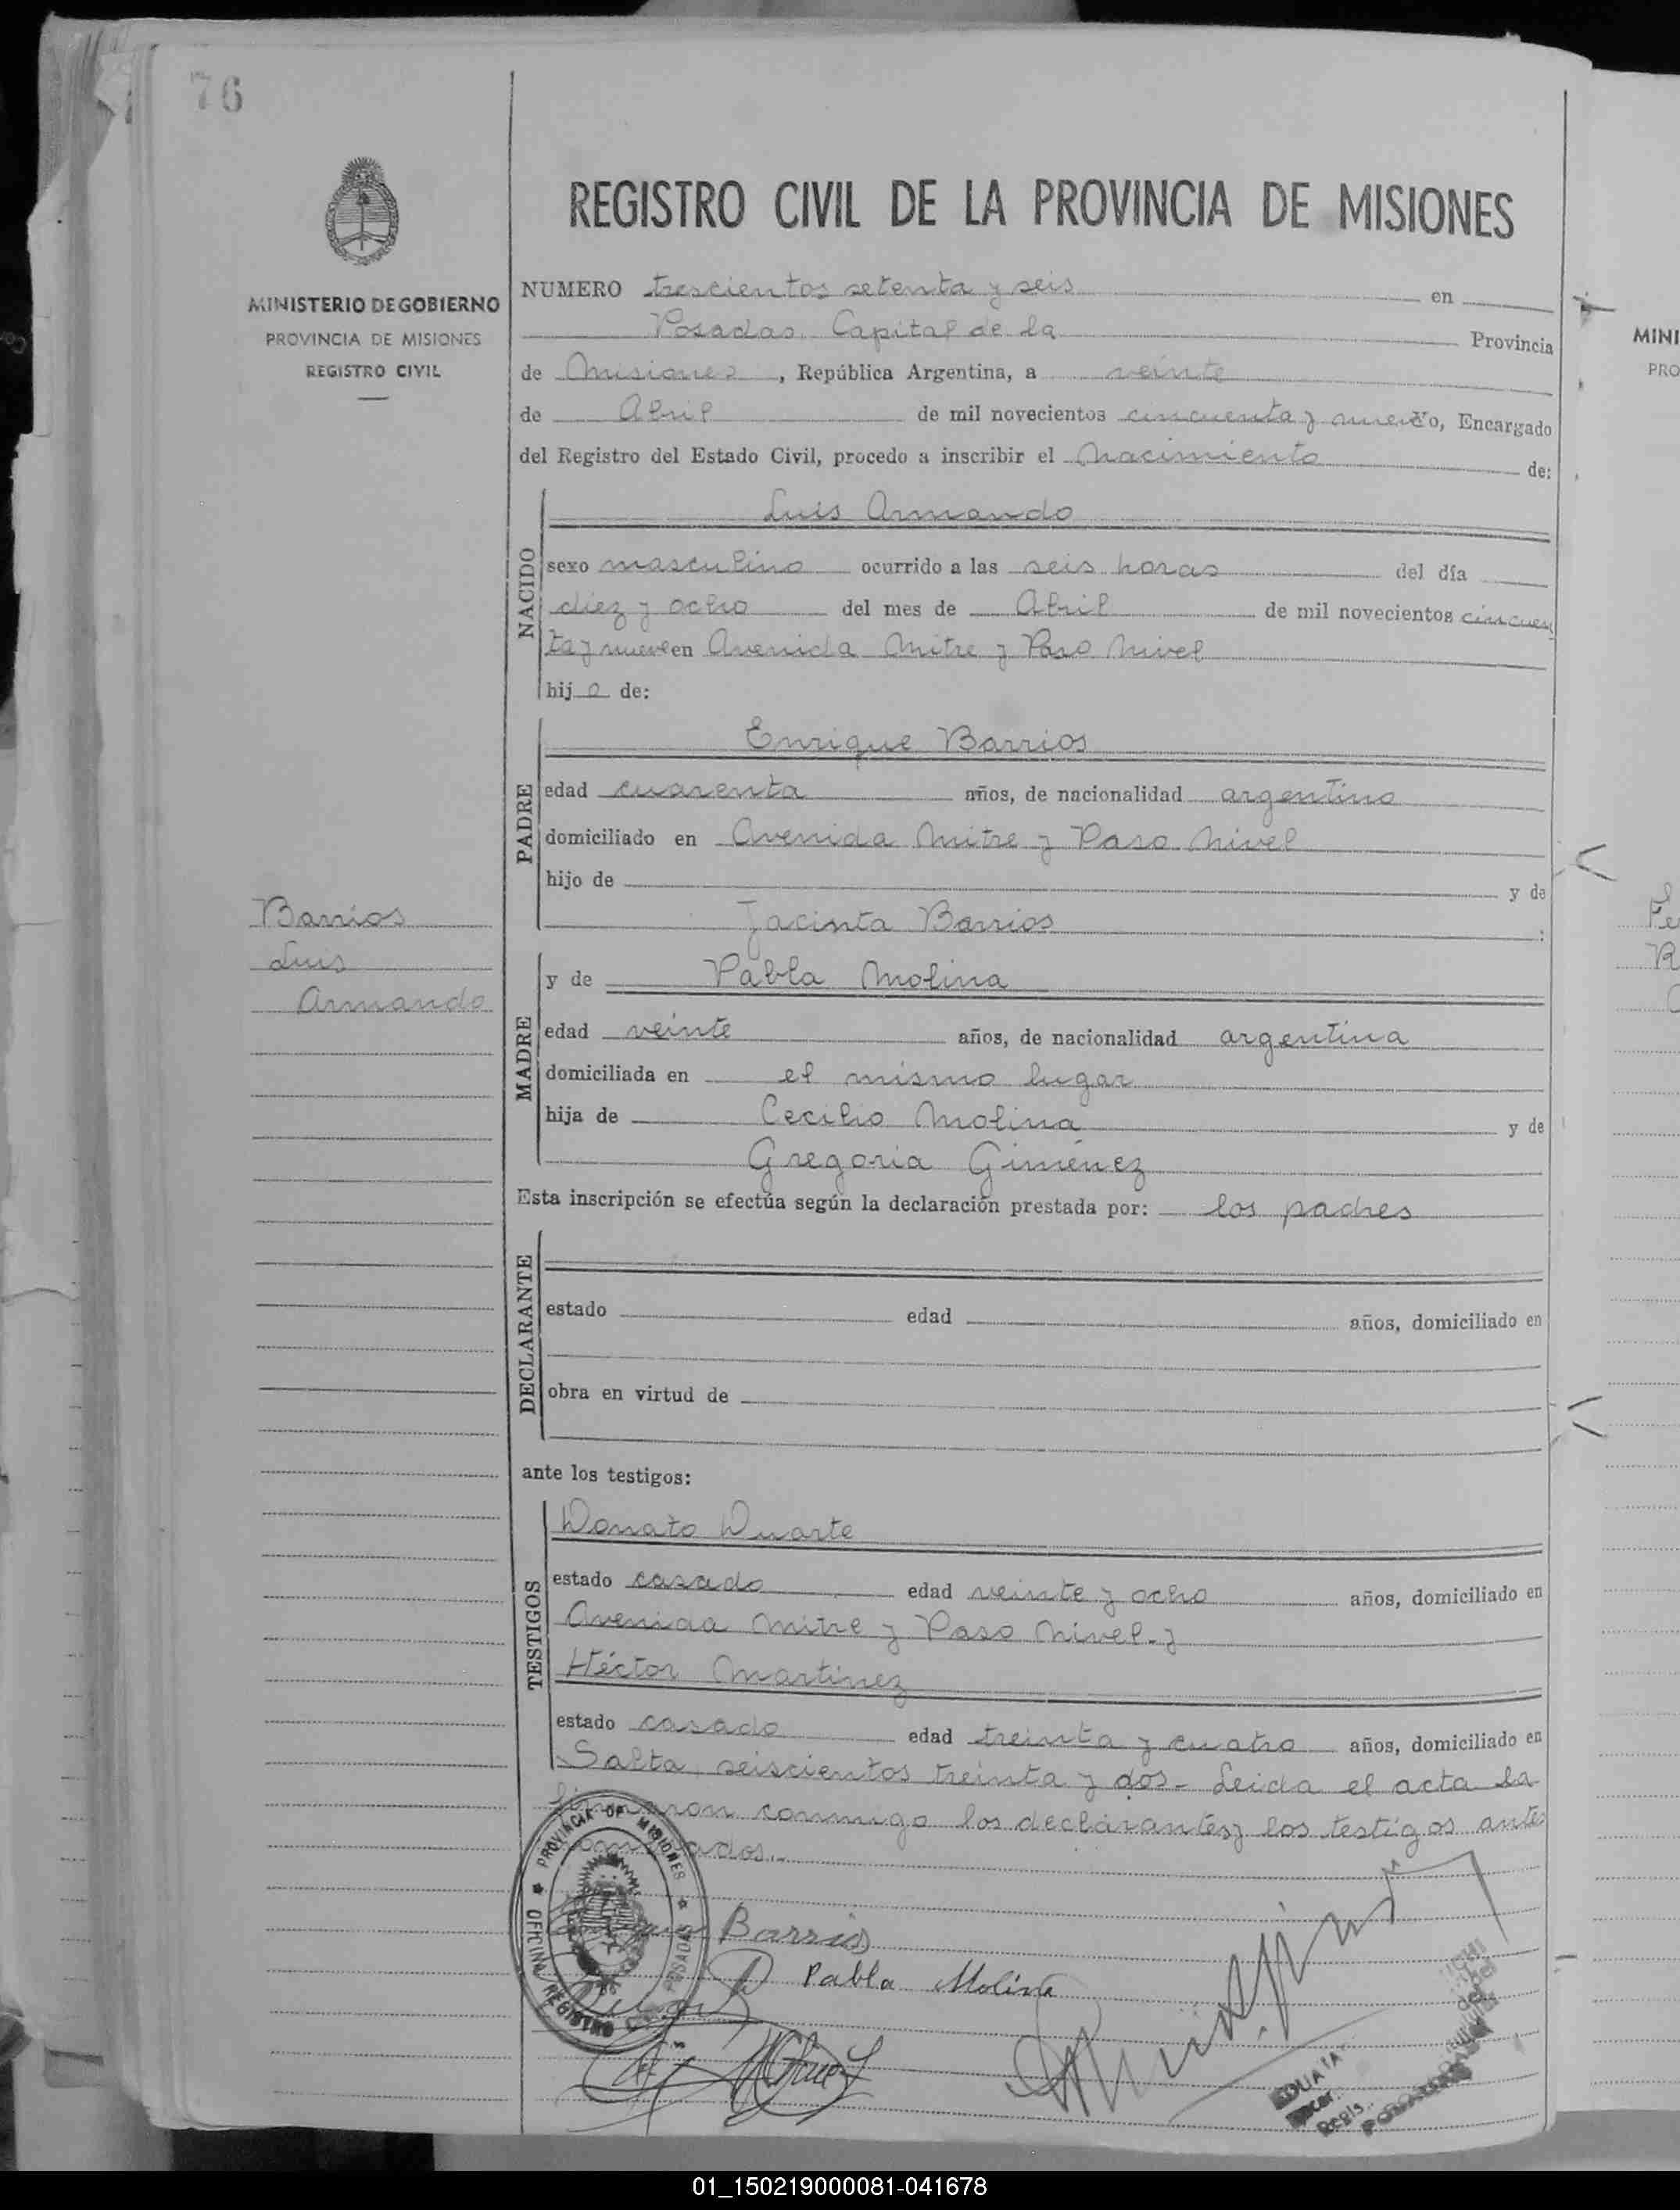 76
MINISTERIO DE GOBIERNO
PROVINCIA DE MISIONES
REGISTRO CIVIL
Barrios
Luis
Armando
REGISTRO CIVIL DE LA PROVINCIA DE MISIONES
NUMERO trescientos setenta y seis en
Posadas, Capital de la Provincia
de Misiones, República Argentina, a veinte
de Abril de mil novecientos cincuenta y nueve, Encargado
del Registro del Estado Civil, procedo a inscribir el Nacimiento de:
NACIDO
Luis Armando
sexo masculino ocurrido a las seis horas del día
diez y ocho del mes de Abril de mil novecientos cincuen
ta y nueve en Avenida Mitre y Paso Nivel
hijo de:
PADRE
Enrique Barrios
edad cuarenta años, de nacionalidad argentino
domiciliado en Avenida Mitre y Paso Nivel
hijo de y de
Jacinta Barrios :
MADRE
y de Pabla Molina
edad veinte años, de nacionalidad argentina
domiciliada en el mismo lugar
hija de Cecilio Molina y de
Gregoria Giménez
Esta inscripción se efectúa según la declaración prestada por: los padres
DECLARANTE
estado edad años, domiciliado en
obra en virtud de
ante los testigos:
TESTIGOS
Donato Duarte
estado casado edad veinte y ocho años, domiciliado en
Avenida Mitre y Paso Nivel y
Héctor Martínez
estado casado edad treinta y cuatro años, domiciliado en
Salta seiscientos treinta y dos - Leida el acta la
firmaron conmigo los declarantes y los testigos ante
PROVINCIA DE MISIONES
OFICINA REGISTRO
POSADAS
Barrios
Pabla Molina
MINI
PRO
01_150219000081-041678